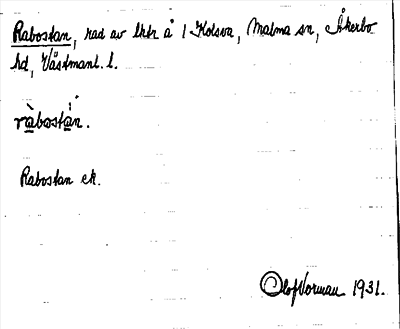 Rabostan, rad av lhtr å 1 Kolsva, Malma sn, Åkerbo
hd, Västmanl. l.
ràbostan.
Rabostan ek.
Olof Norman 1931.